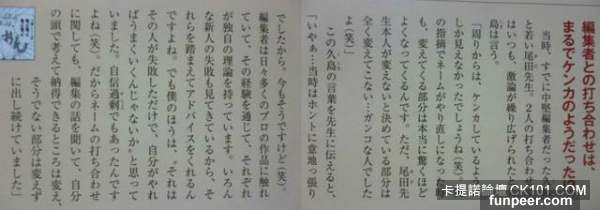 編集者との打ち合わせは、
まるでケンカのようだった
当時、すでに中堅編集者だった
と若い尾田先生。2人の打ち合わ
はいつも、激論が繰り広げられた
島は言う。
「周りからは、ケンカしているよ
しか見えなかったでしょうね（笑）
の指摘でネームがやり直しになっ
も、変えてくる部分は本当に驚くほど
よくなってくるんです。ただ、尾田先
生本人が変えないと決めている部分は
全く変えてこない…ガンコな人でした
よ（笑）」
この久島の言葉を先生に伝えると、
「いやぁ…当時はホントに意地っ張り
でしたから。今もそうですけど（笑）。
編集者は日々多くのプロの作品に触れ
ていて、その経験を通じて、それぞれ
が独自の理論を持っています。いろん
な新人の失敗も見てきているから、そ
れらを踏まえてアドバイスをくれるん
ですよね。でも僕のほうは、“それは
その人が失敗しただけで、自分がやれ
ばうまくいくんじゃないか”と思って
いました。自信過剰でもあったんです
よね（笑）。だからネームの打ち合わせ
に関しても、編集の話を聞いて、自分
の頭で考えて納得できるところは変え、
そうでない部分は変えず
に出し続けていました」
卡提諾論壇 CK101.COM
funpeer.com